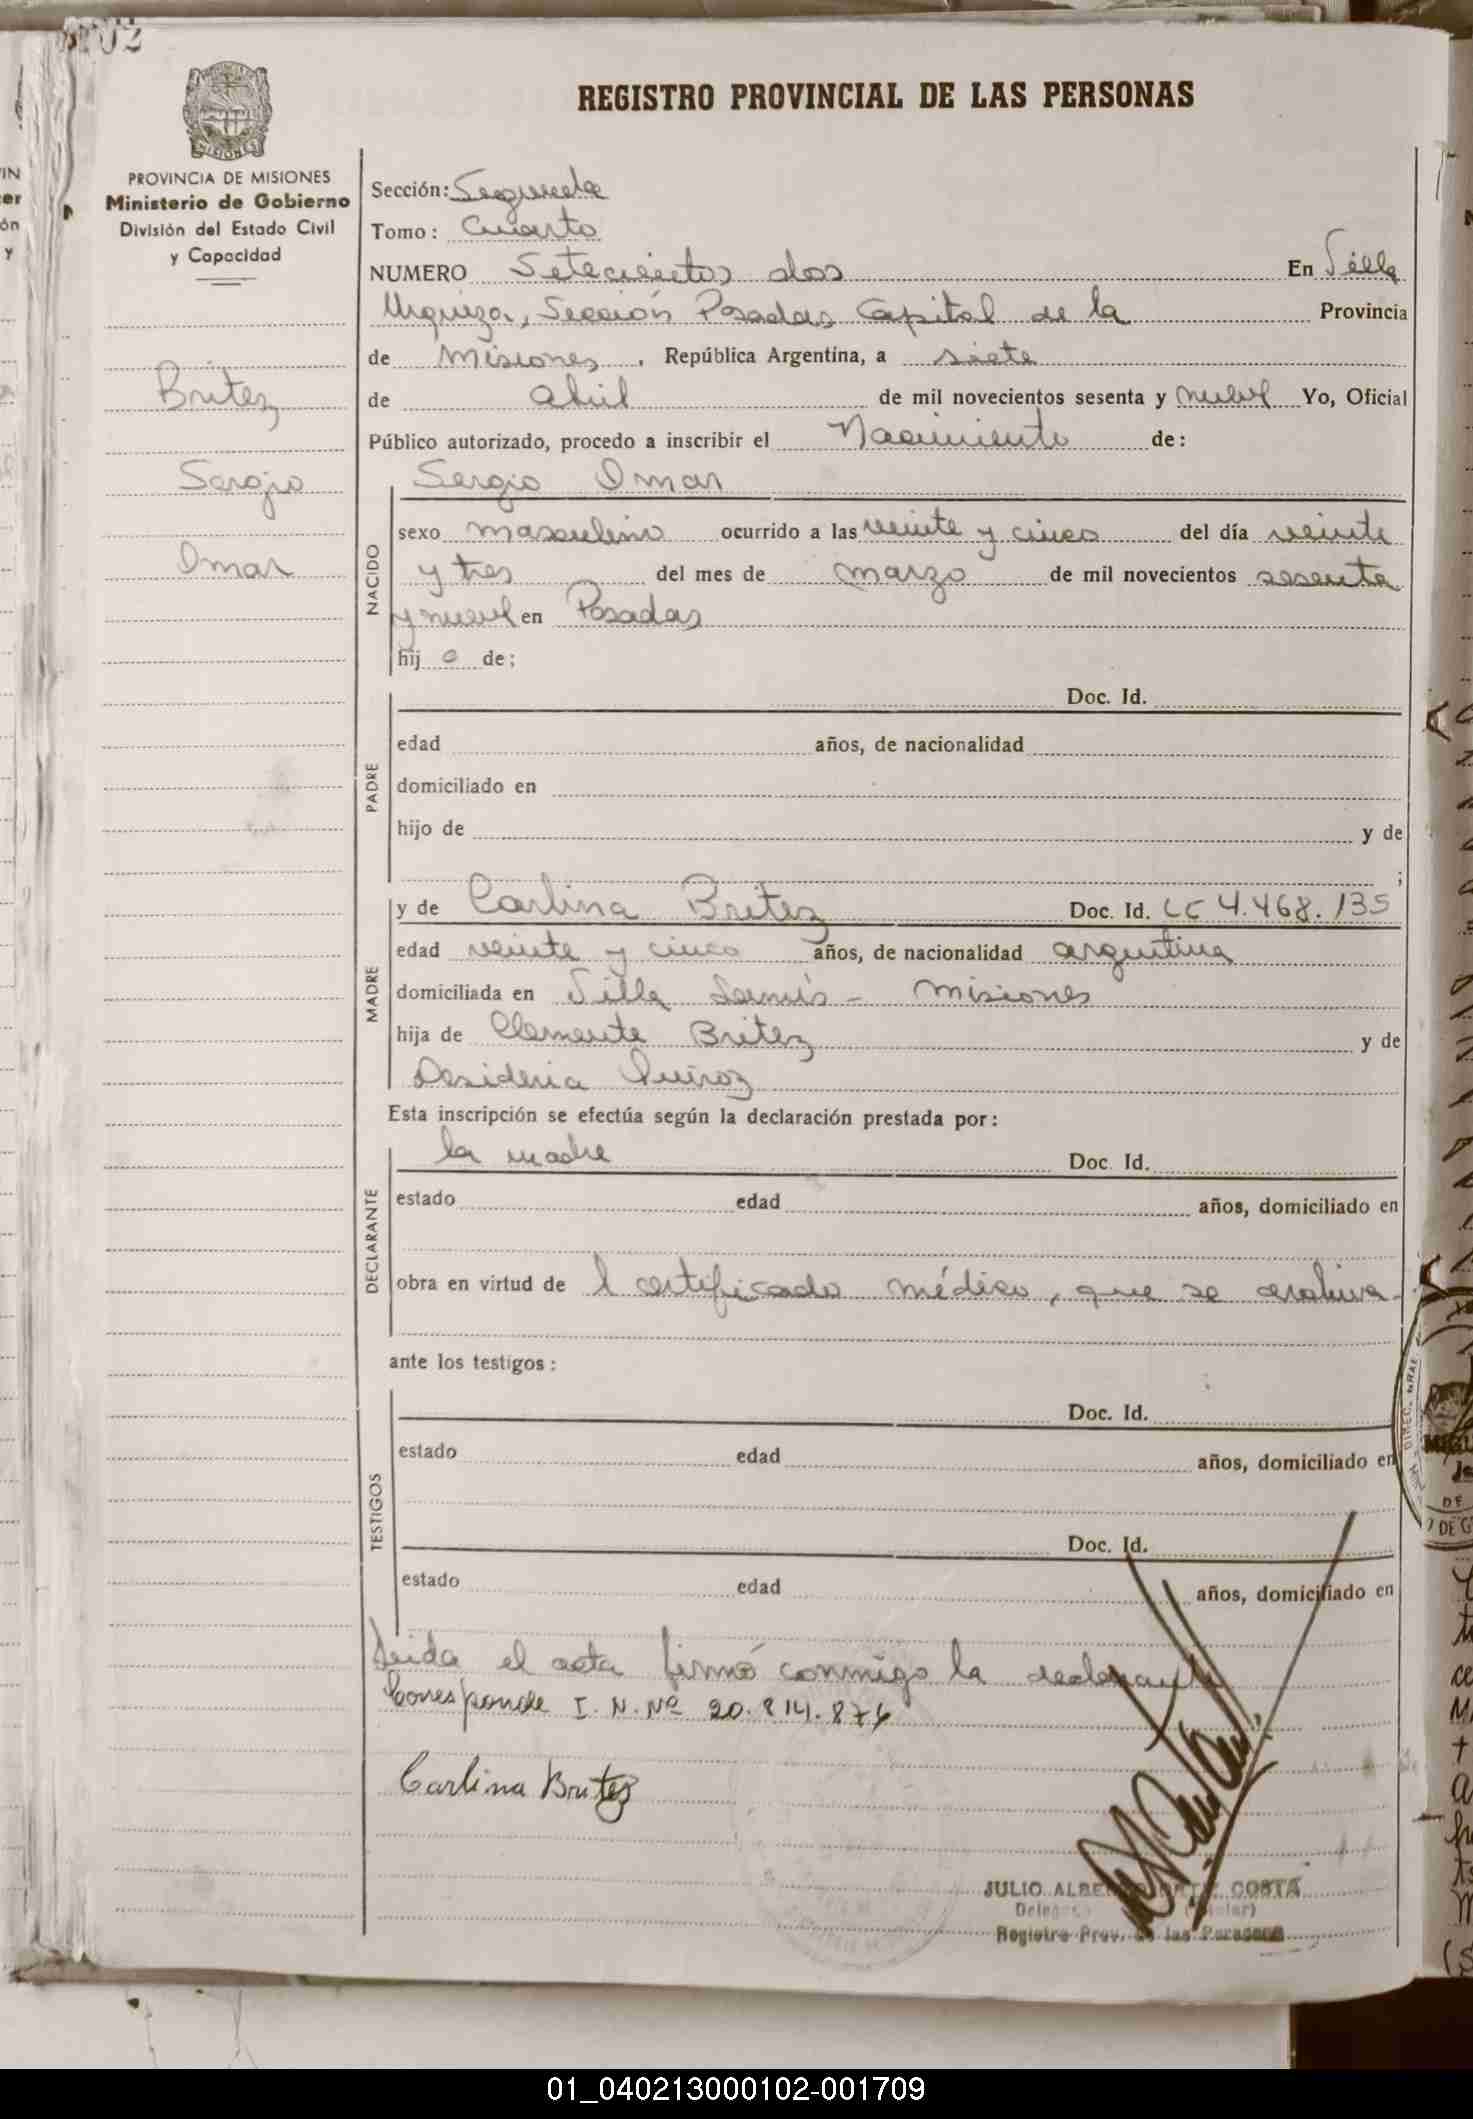 702
REGISTRO PROVINCIAL DE LAS PERSONAS
MISIONES
PROVINCIA DE MISIONES
Ministerio de Gobierno
División del Estado Civil
y Capacidad
Sección: Segunda
Tomo: Cuarto
NUMERO Setecientos dos En Villa
Urquiza, Sección Posadas Capital de la Provincia
de Misiones, República Argentina, a siete
de abril de mil novecientos sesenta y nueve Yo, Oficial
Público autorizado, procedo a inscribir el Nacimiento de:
Britez
Sergio
Omar
NACIDO
Sergio Omar
sexo masculino ocurrido a las veinte y cinco del día veinte
y tres del mes de marzo de mil novecientos sesenta
y nueve en Posadas
hijo de;
PADRE
Doc. Id.
edad años, de nacionalidad
domiciliado en
hijo de y de
;
MADRE
y de Carlina Britez Doc. Id. LC 4.468.135
edad veinte y cinco años, de nacionalidad argentina
domiciliada en Villa Lanús - Misiones
hija de Clemente Britez y de
Desideria Quiroz
Esta inscripción se efectúa según la declaración prestada por:
DECLARANTE
la madre Doc. Id.
estado edad años, domiciliado en
obra en virtud de l certificado médico, que se archiva.
ante los testigos:
TESTIGOS
Doc. Id.
estado edad años, domiciliado en
Doc. Id.
estado edad años, domiciliado en
Leida el acta firmó conmigo la declarante
Corresponde I. N. Nº 20.814.874
Carlina Britez
JULIO ALBE COSTA
Registro Prov. de las Personas
01_040213000102-001709